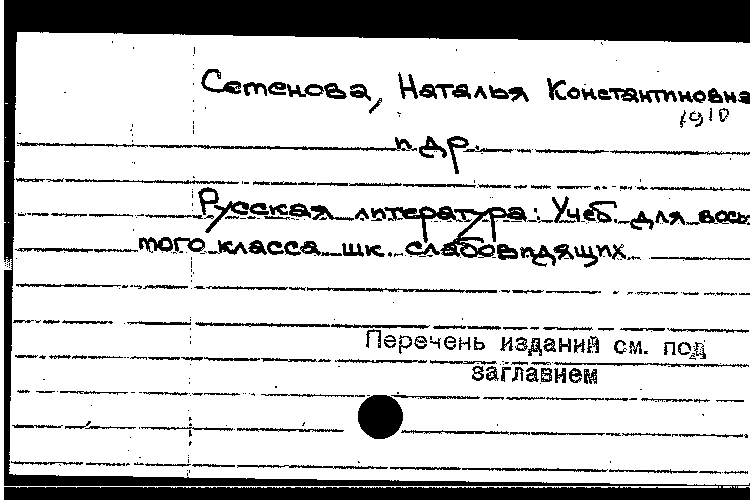 Сетенова, Наталья Константиновна
1910
и др.
Русская литература: Учеб. для вось
того класса шк. слабовидящих
Перечень изданий см. под
заглавием